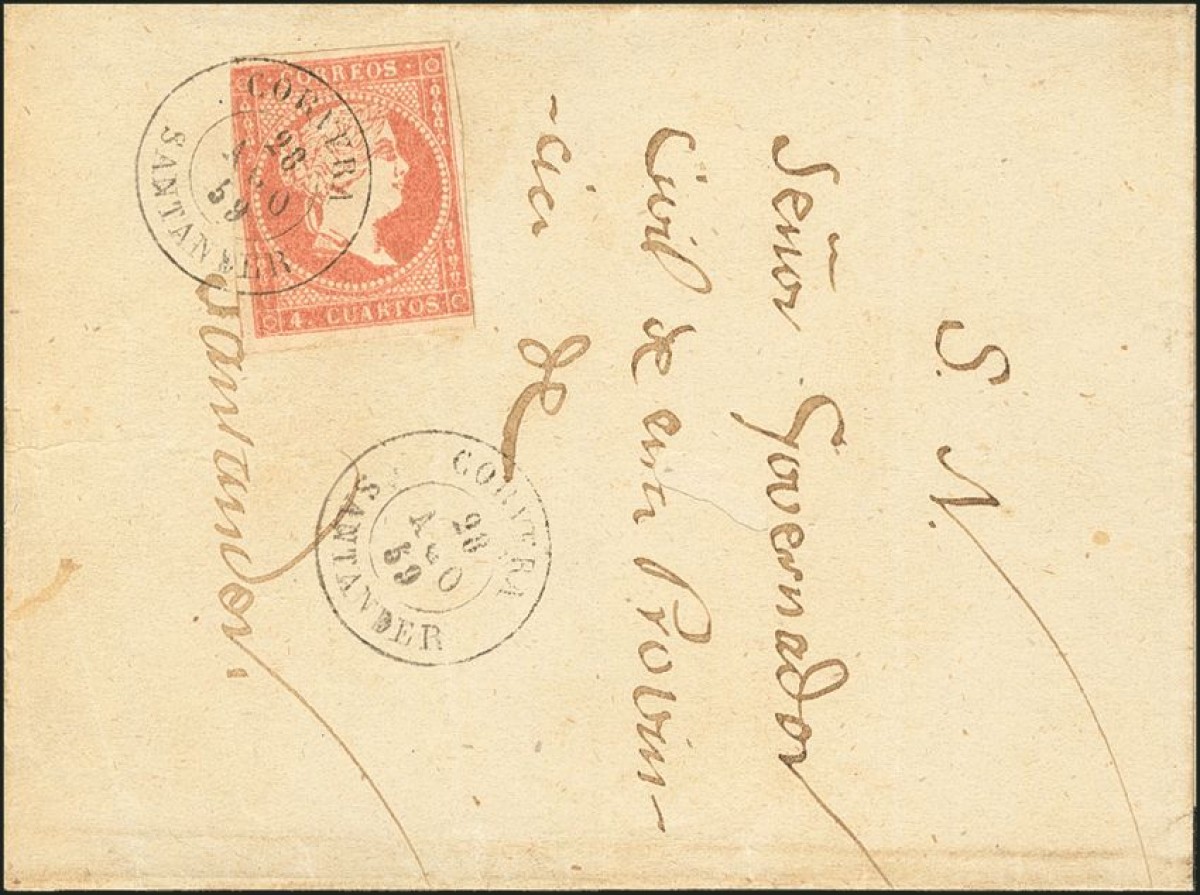 S. N.
Señor Governador
Civil de esta Provin-
-cia de
Santander.
CORREOS
4. CUARTOS
CORVERA
28
AGO
59
SANTANDER
CORVERA
28
AGO
59
SANTANDER